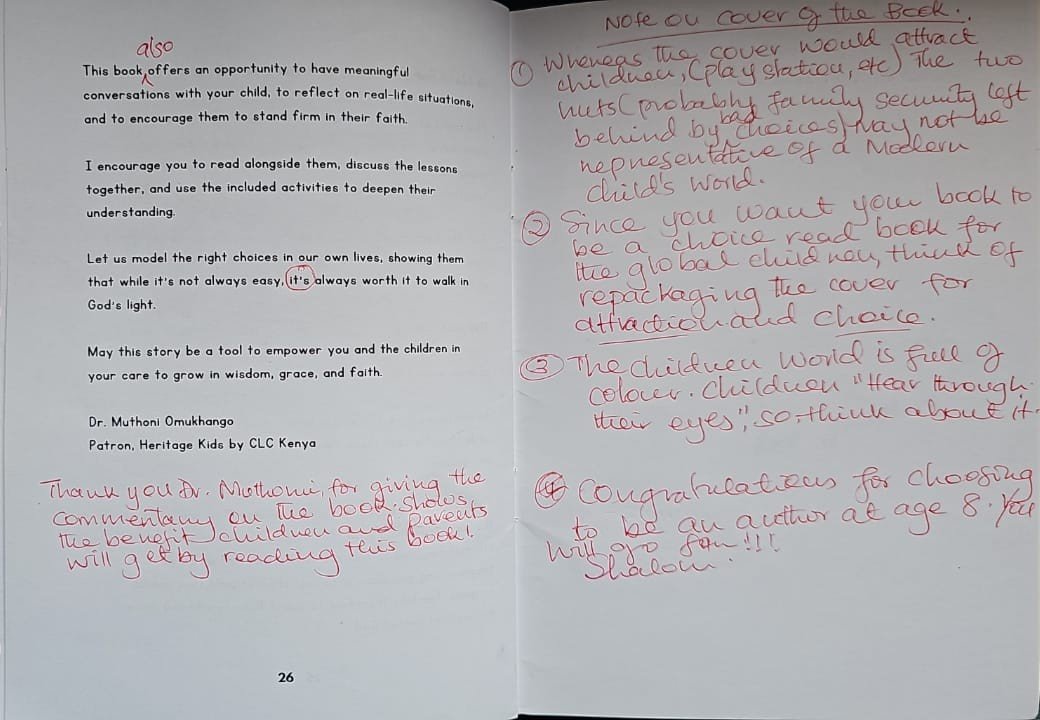 also
This book offers an opportunity to have meaningful
conversations with your child, to reflect on real-life situations,
and to encourage them to stand firm in their faith.
I encourage you to read alongside them, discuss the lessons
together, and use the included activities to deepen their
understanding.
Let us model the right choices in our own lives, showing them
that while it's not always easy, it's always worth it to walk in
God's light.
May this story be a tool to empower you and the children in
your care to grow in wisdom, grace, and faith.
Dr. Muthoni Omukhango
Patron, Heritage Kids by CLC Kenya
Thank you Dr. Muthoni, for giving the
commentary on the book. Shows
the benefit children and parents
will get by reading this book!
26
Note on cover of the Book.
① Whereas the cover would attract
children, (play station, etc) The two
huts (probably family security left
behind by bad choices) may not be
representative of a Modern
child's world.
② Since you want your book to
be a choice read book for
the global children, think of
repackaging the cover for
attraction and choice.
③ The children world is full of
colour. Children "Hear through
their eyes", so, think about it.
④ Congratulations for choosing
to be an author at age 8. You
will go far!!!
Shalom.